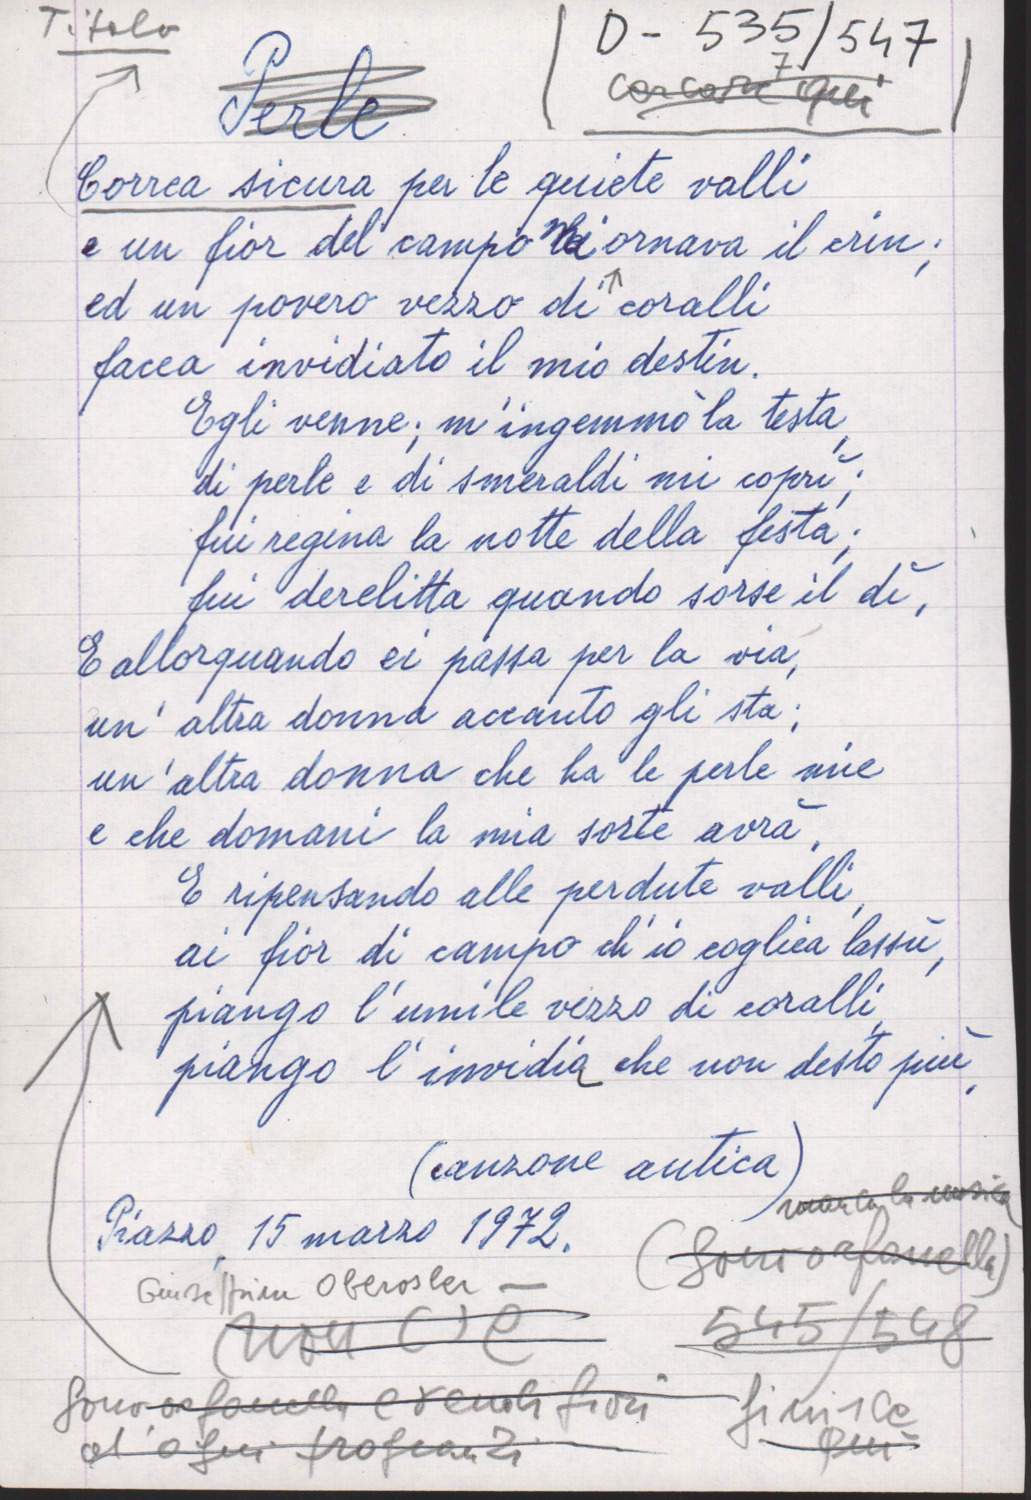 Titolo
D - 535/547
7
cercare qui
Perle
Correa sicura per le quiete valli
e un fior del campo mi ornava il crin;
ed un povero vezzo di coralli
facea invidiato il mio destin.
Egli venne; m'ingemmò la testa,
di perle e di smeraldi mi coprì;
fui regina la notte della festa;
fui derelitta quando sorse il dì.
E allorquando ei passa per la via,
un' altra donna accanto gli sta;
un'altra donna che ha le perle mie
e che domani la mia sorte avrà.
E ripensando alle perdute valli,
ai fior di campo ch'io coglica lassù,
piango l'umile vezzo di coralli,
piango l'invidia che non desto più.
(canzone antica)
manca la musica
Piazzo, 15 marzo 1972.
(Sono orfanella)
Giuseppina Oberosler —
Non C'è
545/548
Sono orfanella e vendi fiori
d'ogni
finisce
qui